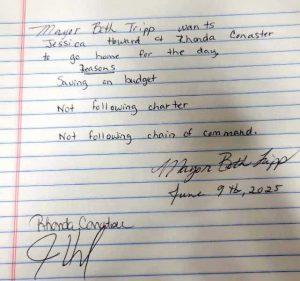 Mayor Beth Tripp wants
Jessica Howard & Rhonda Conaster
to go home for the day
Reasons
Saving on budget
Not following charter
Not following chain of command.
Mayor Beth Tripp
June 9th, 2025
Rhonda